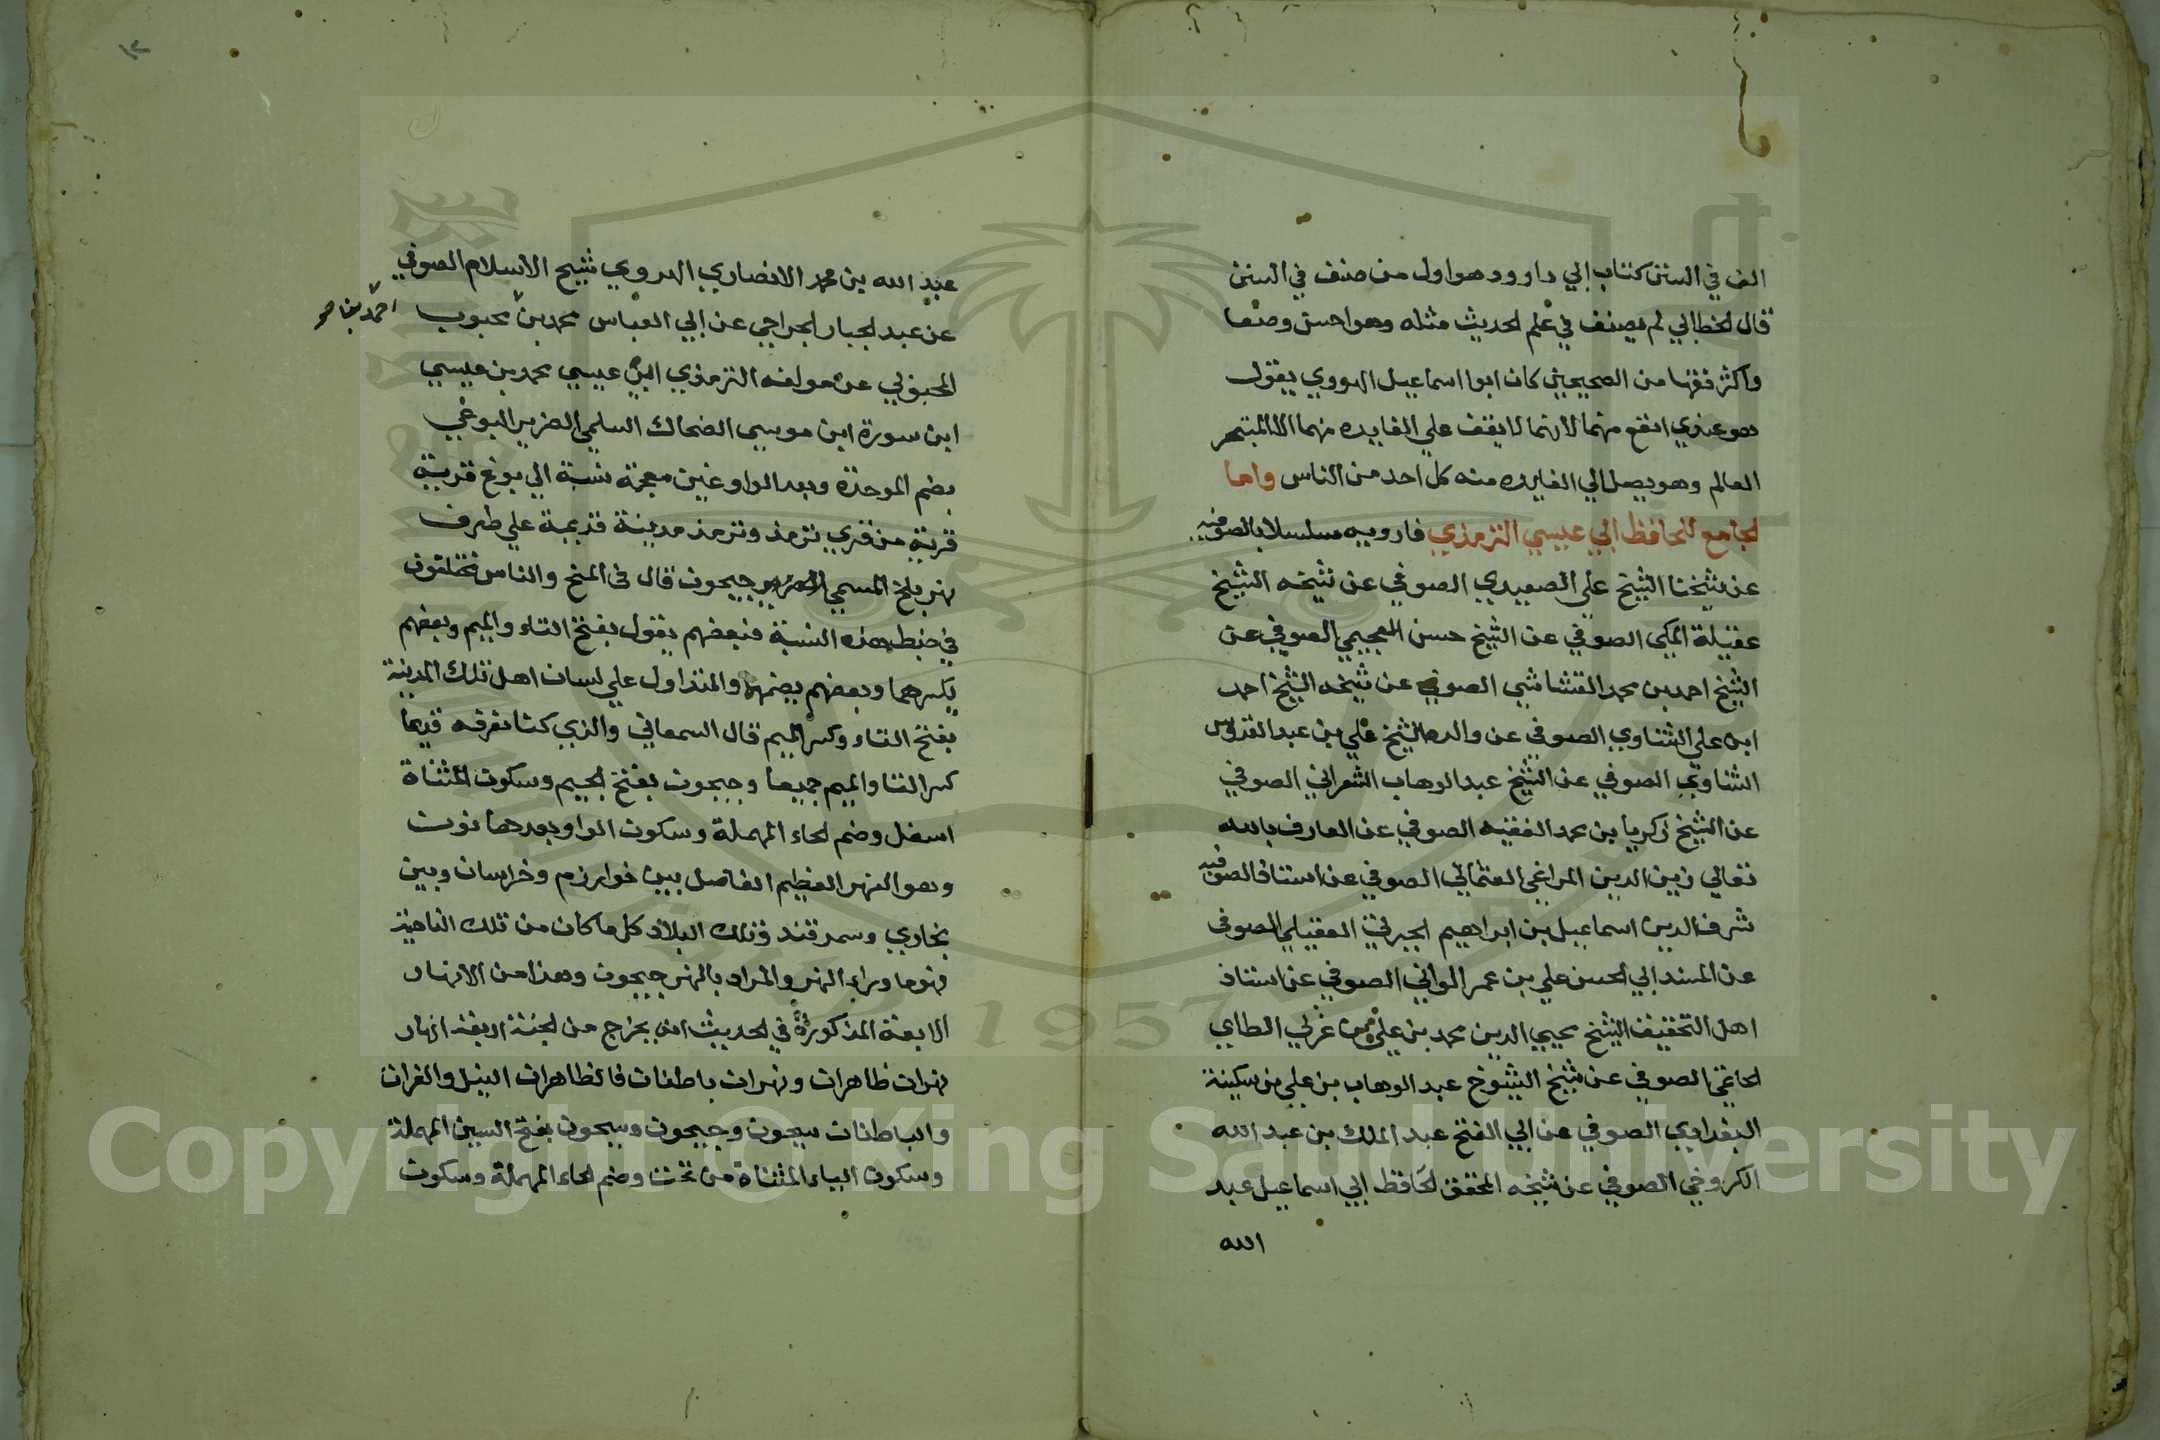 الف في السنن كتاب ابي داوود وهو اول من صنف في السنن
قال الخطابي لم يصنف في علم الحديث مثله وهو احسن وضعا
واكثر فقها من الصحيحين كان ابوا اسماعيل الهروي يقول
هو عندي انفع منهما لانهما لا يقف علي الفايده منهما الا المتبحر
العالم وهو يصل الي الفايده منه كل احد من الناس واما
الجامع للحافظ ابي عيسي الترمذي فارويه مسلسلا بالصوفيه
عن شيخنا الشيخ علي الصعيدي الصوفي عن شيخه الشيخ
عقيلة المكي الصوفي عن الشيخ حسن العجيمي الصوفي عن
الشيخ احمد بن محمد القشاشي الصوفي عن شيخه الشيخ احمد
ابن علي الشناوي الصوفي عن والده الشيخ علي بن عبد القدوس
الشناوي الصوفي عن الشيخ عبد الوهاب الشعراني الصوفي
عن الشيخ زكريا بن محمد الفقيه الصوفي عن العارف بالله
تعالي زين الدين المراغي العثماني الصوفي عن استاذ الصوفيه
شرف الدين اسماعيل بن ابراهيم الجبرتي العقيلي الصوفي
عن المسند ابي الحسن علي بن عمر الواني الصوفي عن استاذ
اهل التحقيق الشيخ محيي الدين محمد بن علي بن عربي الطاي
الحاتمي الصوفي عن شيخ الشيوخ عبد الوهاب بن علي بن سكينة
البغدادي الصوفي عن ابي الفتح عبد الملك بن عبد الله
الكروخي الصوفي عن شيخه المحقق الحافظ ابي اسماعيل عبد
الله
١٣
عبد الله بن محمد الانصاري الهروي شيخ الاسلام الصوفي
عن عبد الجبار الجراحي عن ابي العباس محمد بن محبوب
احمد بن
المحبوبي عن مولفه الترمذي ابي عيسي محمد بن عيسي
ابن سورة ابن موسي الضحاك السلمي الضرير البوغي
بضم الموحدة وبعد الواو غين معجمة نسبة الي بوغ قرية
قرية من قري ترمذ وترمذ مدينة قديمة علي طرف
نهر بلخ المسمي جيحون قال في المنح والناس مختلفون
في ضبط هذه النسبة فبعضهم يقول بفتح التاء والميم وبعضهم
بكسرهما وبعضهم بضمهما والمتداول علي لسان اهل تلك المدينة
بفتح التاء وكسر الميم قال السمعاني والذي كنا نعرفه قديما
كسر التا والميم جميعا وجيحون بفتح الجيم وسكون المثناة
اسفل وضم الحاء المهملة وسكون الواو بعدها نون
وهو النهر العظيم الفاصل بين خوارزم وخراسان وبين
بخاري وسمرقند وتلك البلاد كل ما كان من تلك الناحية
فهو ما وراء النهر والمراد بالنهر جيحون وهذا من الانهار
الاربعة المذكورة في الحديث انه يخرج من الجنة اربعة انهار
نهران ظاهران ونهران باطنان فالظاهران النيل والفرات
والباطنان سيحون وجيحون وسيحون بفتح السين المهملة
وسكون الياء المثناة من تحت وضم الحاء المهملة وسكون
1957
Copyright © King Saud University